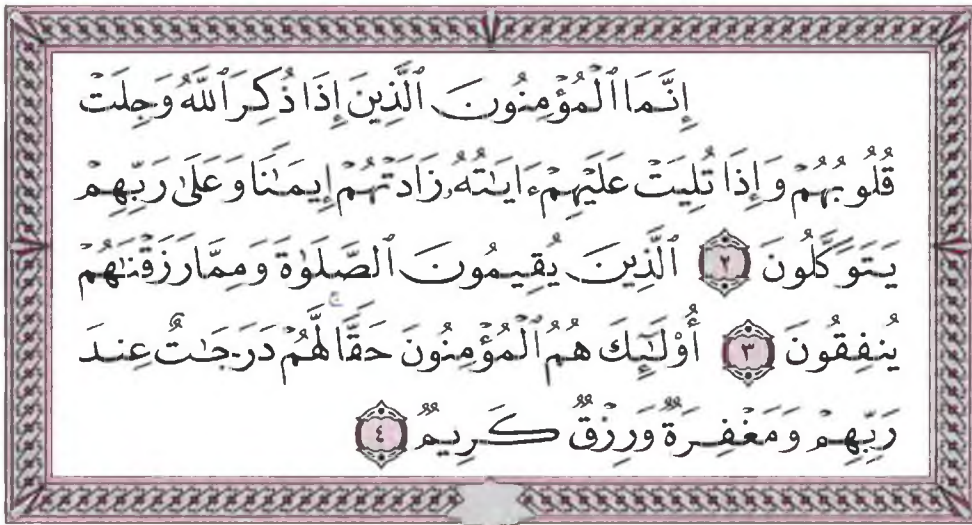 إِنَّمَا ٱلْمُؤْمِنُونَ ٱلَّذِينَ إِذَا ذُكِرَ ٱللَّهُ وَجِلَتْ
قُلُوبُهُمْ وَإِذَا تُلِيَتْ عَلَيْهِمْ ءَايَـٰتُهُۥ زَادَتْهُمْ إِيمَـٰنًا وَعَلَىٰ رَبِّهِمْ
يَتَوَكَّلُونَ ٢ ٱلَّذِينَ يُقِيمُونَ ٱلصَّلَوٰةَ وَمِمَّا رَزَقْنَـٰهُمْ
يُنفِقُونَ ٣ أُو۟لَـٰٓئِكَ هُمُ ٱلْمُؤْمِنُونَ حَقًّا ۚ لَّهُمْ دَرَجَـٰتٌ عِندَ
رَبِّهِمْ وَمَغْفِرَةٌ وَرِزْقٌ كَرِيمٌ ٤